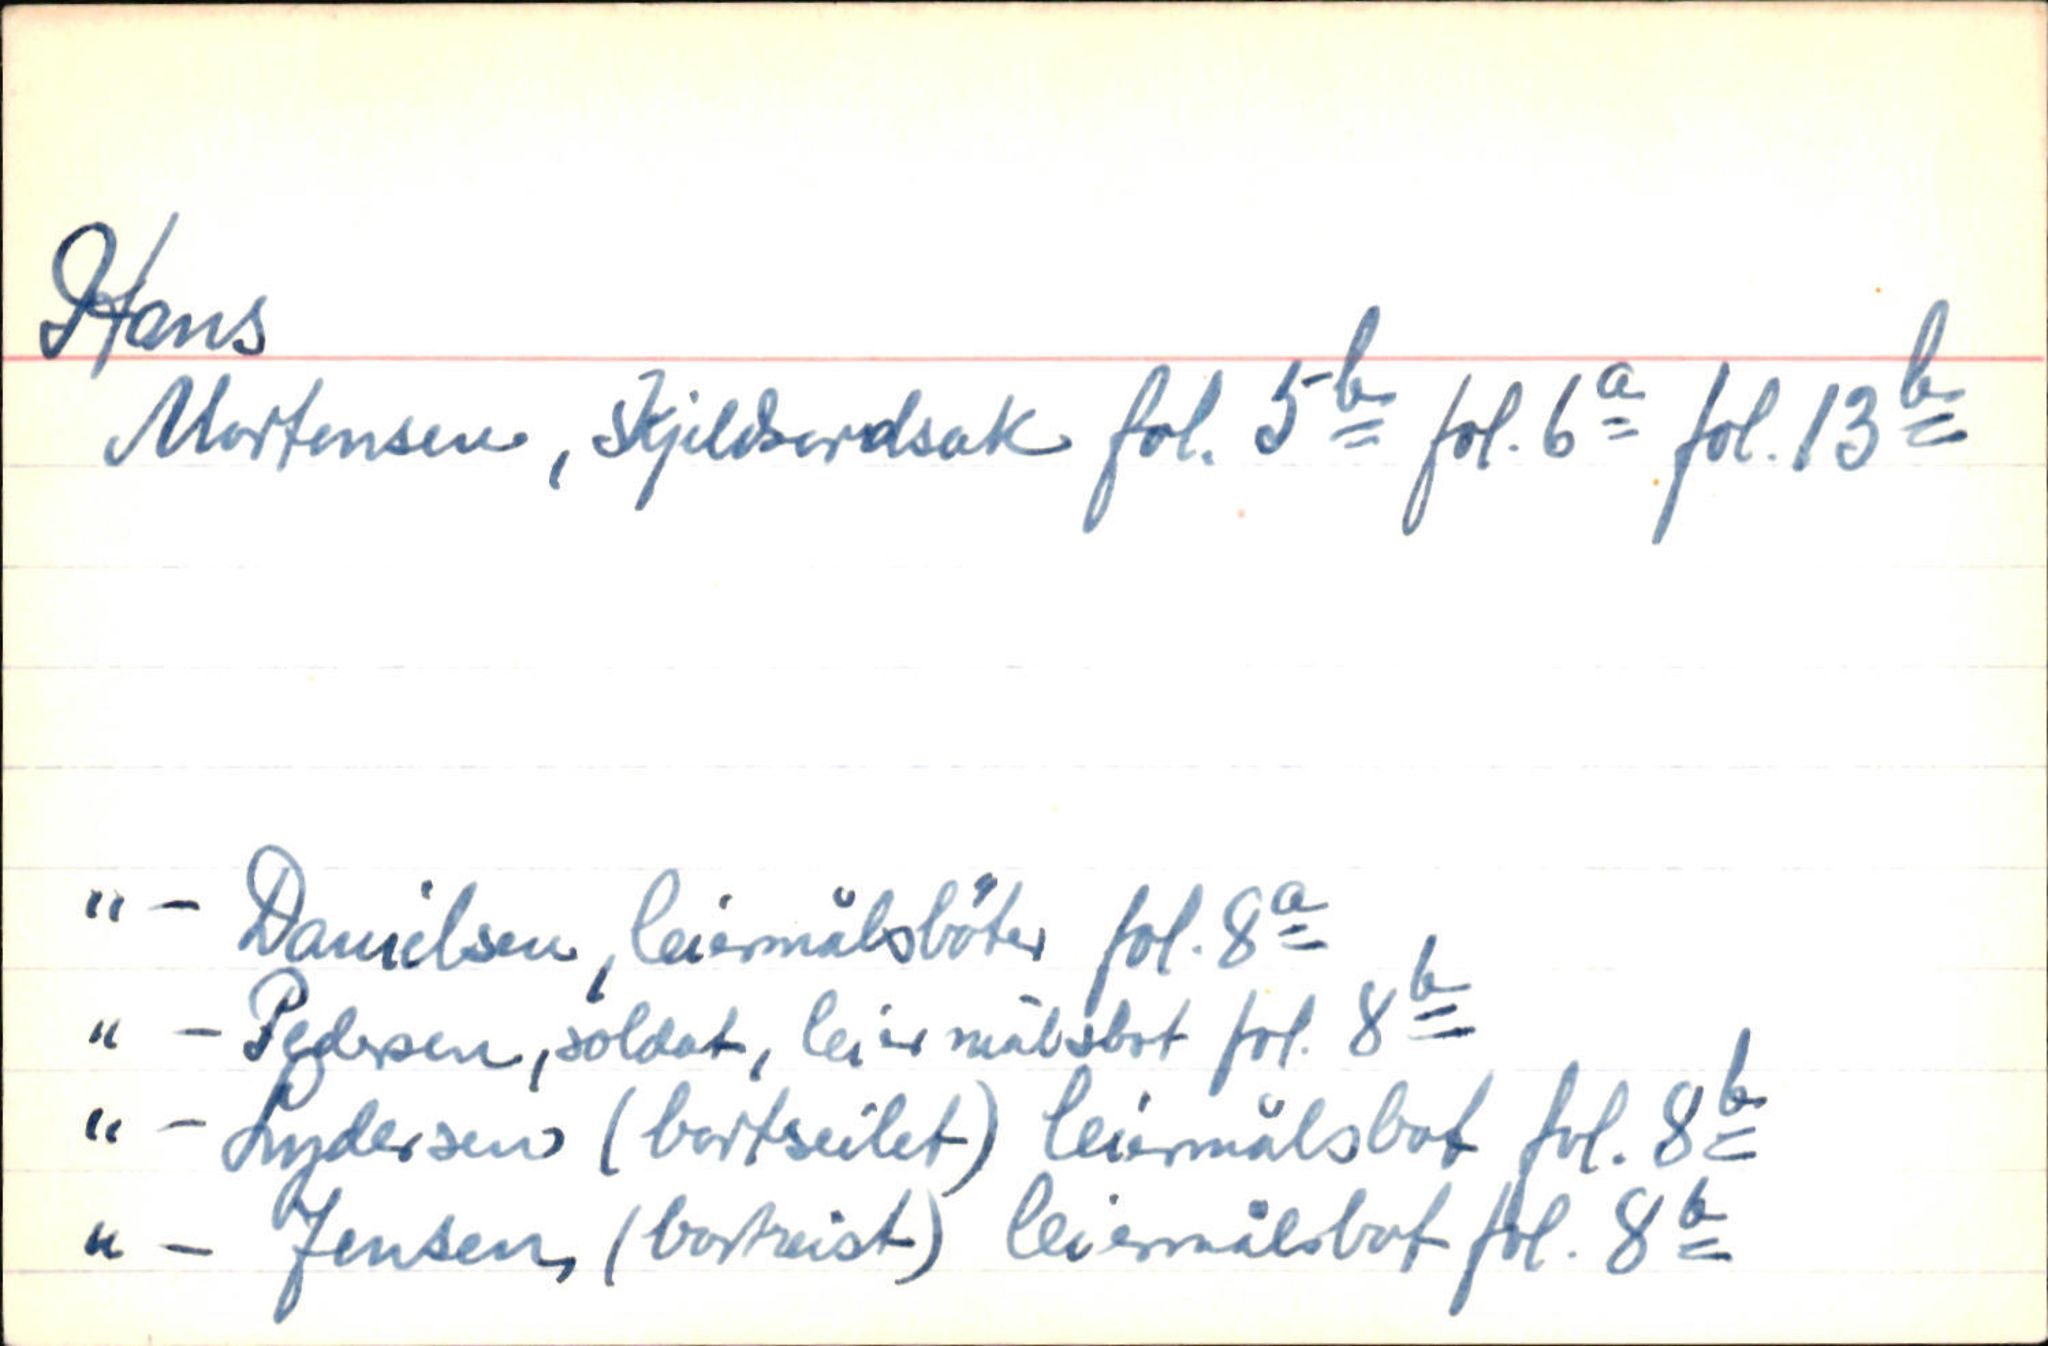 Hans
Mortensen, Skjeldsordsak fol. 5b fol. 6a fol. 13b
" - Danielsen, leiermålsböter fol. 8a
" - Pedersen, soldat, leiermålsbot fol. 8b
" - Lydersen (bortseilet) leiermålsbot fol. 8b
" - Jensen, (bortreist) leiermålsbot fol. 8b